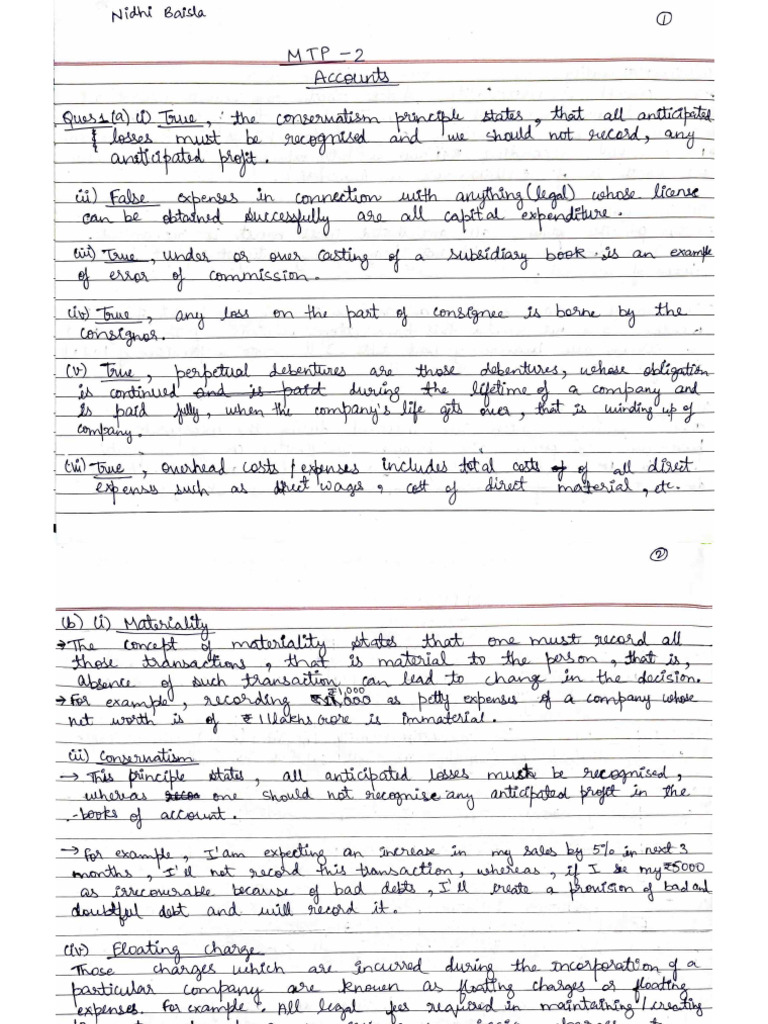 Nidhi Baisla
1
MTP - 2
Accounts
Ques 1 (a) (i) True, the conservatism principle states, that all anticipated
losses must be recognised and we should not record, any
anticipated profit.
(ii) False expenses in connection with anything (legal) whose license
can be obtained successfully are all capital expenditure.
(iii) True, under or over casting of a subsidiary book is an example
of error of commission.
(iv) True, any loss on the part of consignee is borne by the
consignor.
(v) True, perpetual debentures are those debentures, whose obligation
is continued and is paid during the lifetime of a company and
is paid fully, when the company's life gets over, that is winding up of
company.
(vi) True, overhead costs / expenses includes total costs of of all direct
expenses such as direct wages, cost of direct material, etc.
2
(b) (i) Materiality
→ The concept of materiality states that one must record all
those transactions, that is material to the person, that is,
absence of such transaction can lead to change in the decision.
→ For example, recording ₹1,000 as petty expenses of a company whose
net worth is of ₹ 1 lakhs crore is immaterial.
(ii) Conservatism
→ This principle states, all anticipated losses must be recognised,
whereas one should not recognise any anticipated profit in the
books of account.
→ For example, I'am expecting an increase in my sales by 5% in next 3
months, I'll not record this transaction, whereas, if I see my ₹5000
as irrecoverable because of bad debts, I'll create a provision of bad and
doubtful debt and will record it.
(iv) Floating charge
Those charges which are incurred during the incorporation of a
particular company are known as floating charges or floating
expenses. For example: All legal fees required in maintaining / creating